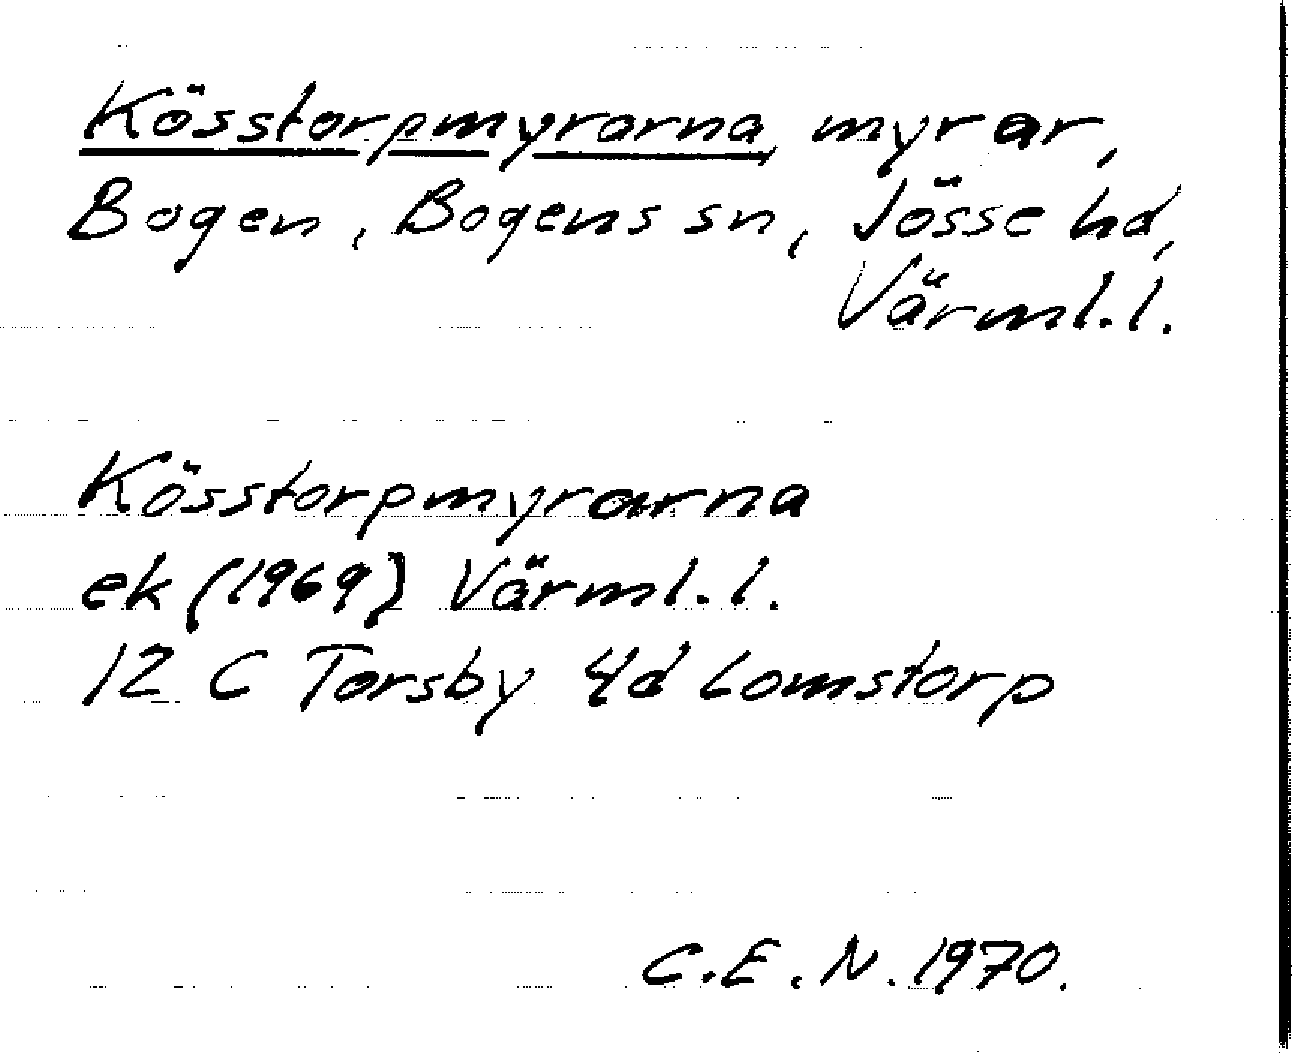 Kösstorpmyrarna, myrar,
Bogen, Bogens sn, Jösse hd,
Värml.l.
Kösstorpmyrarna
ek (1969) Värml.l.
12 C Torsby 4d Lomstorp
C.E.N. 1970.